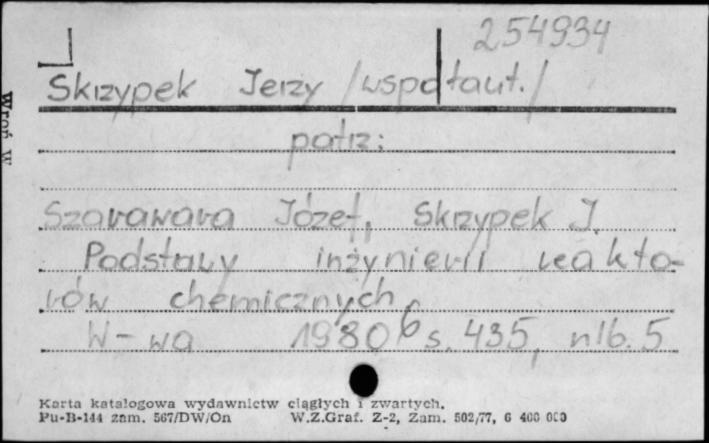 254934
Skrzypek Jerzy /współaut./
patrz:
Szarawara Józef, Skrzypek J.
Podstawy inżynierii reakto-
rów chemicznych,
W-wa 1980 s. 435, nlb. 5
Karta katalogowa wydawnictw ciągłych i zwartych.
Pu-B-144 zam. 567/DW/On W.Z.Graf. Z-2, Zam. 502/77, 6 400 000